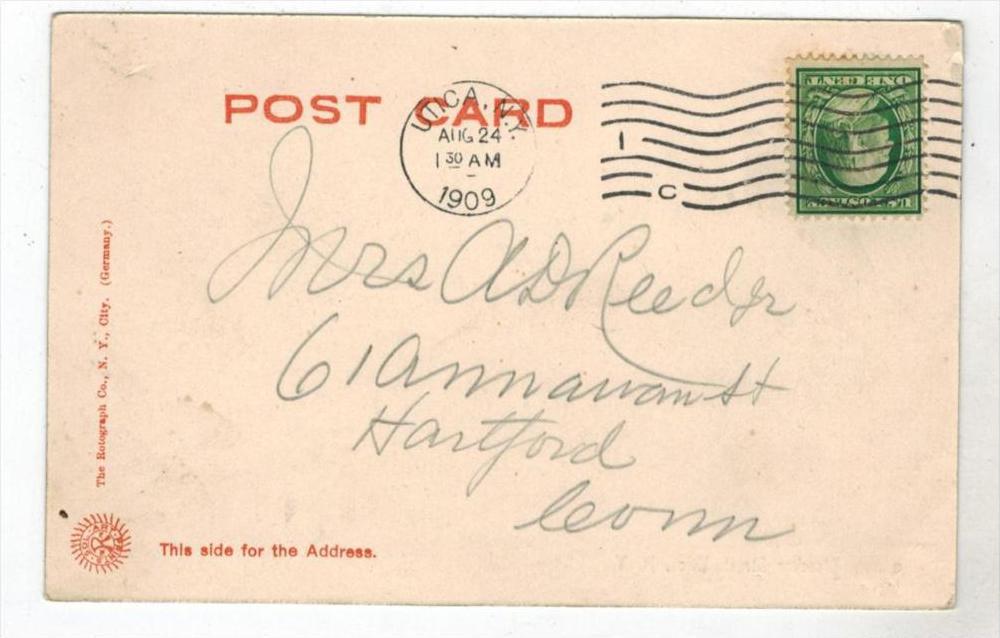 POST CARD
UTICA, N.Y.
AUG 24
1 30 AM
1909
1
C
ONE CENT
U.S. POSTAGE
Mrs A D Reeder
61 Annawan St
Hartford
Conn
The Rotograph Co., N. Y., City. (Germany.)
This side for the Address.